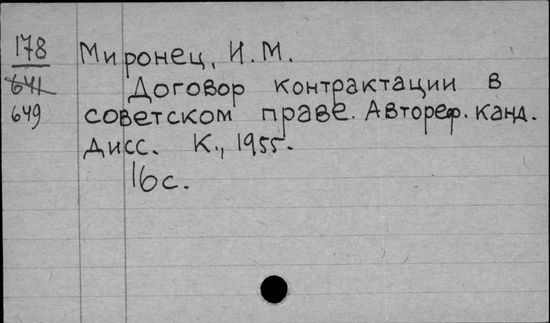 178 Миронец, И.М.
641 Договор контрактации в
649 советском праве. Автореф. канд.
дисс. К., 1955.
16с.